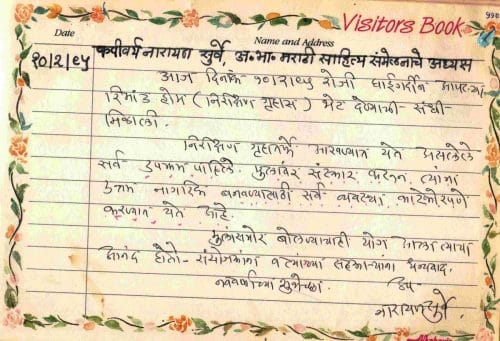 990
Visitors Book
Date Name and Address
१०/२/९५ कवीवर्य नारायण सुर्वे, अ.भा. मराठी साहित्य संमेलनाचे अध्यक्ष
आज दिनांक १०/२/९५ रोजी घाईगर्दीत आपल्या
रिमांड होम (निरिक्षण गृहास) भेट देण्याची संधी
मिळाली.
निरिक्षण गृहातर्फे आखण्यात येत असलेले
सर्व उपक्रम पाहिले. मुलांवर संस्कार करून त्यांना
उत्तम नागरिक बनवण्यासाठी सर्व व्यवस्था काटेकोरपणे
करण्यात येते आहे.
मुलांसमोर बोलण्याचाही योग आला त्याचा
आनंद होतो - संयोजकांना व त्यांच्या सहकाऱ्यांना धन्यवाद.
नववर्षाच्या शुभेच्छा.
नारायण सुर्वे